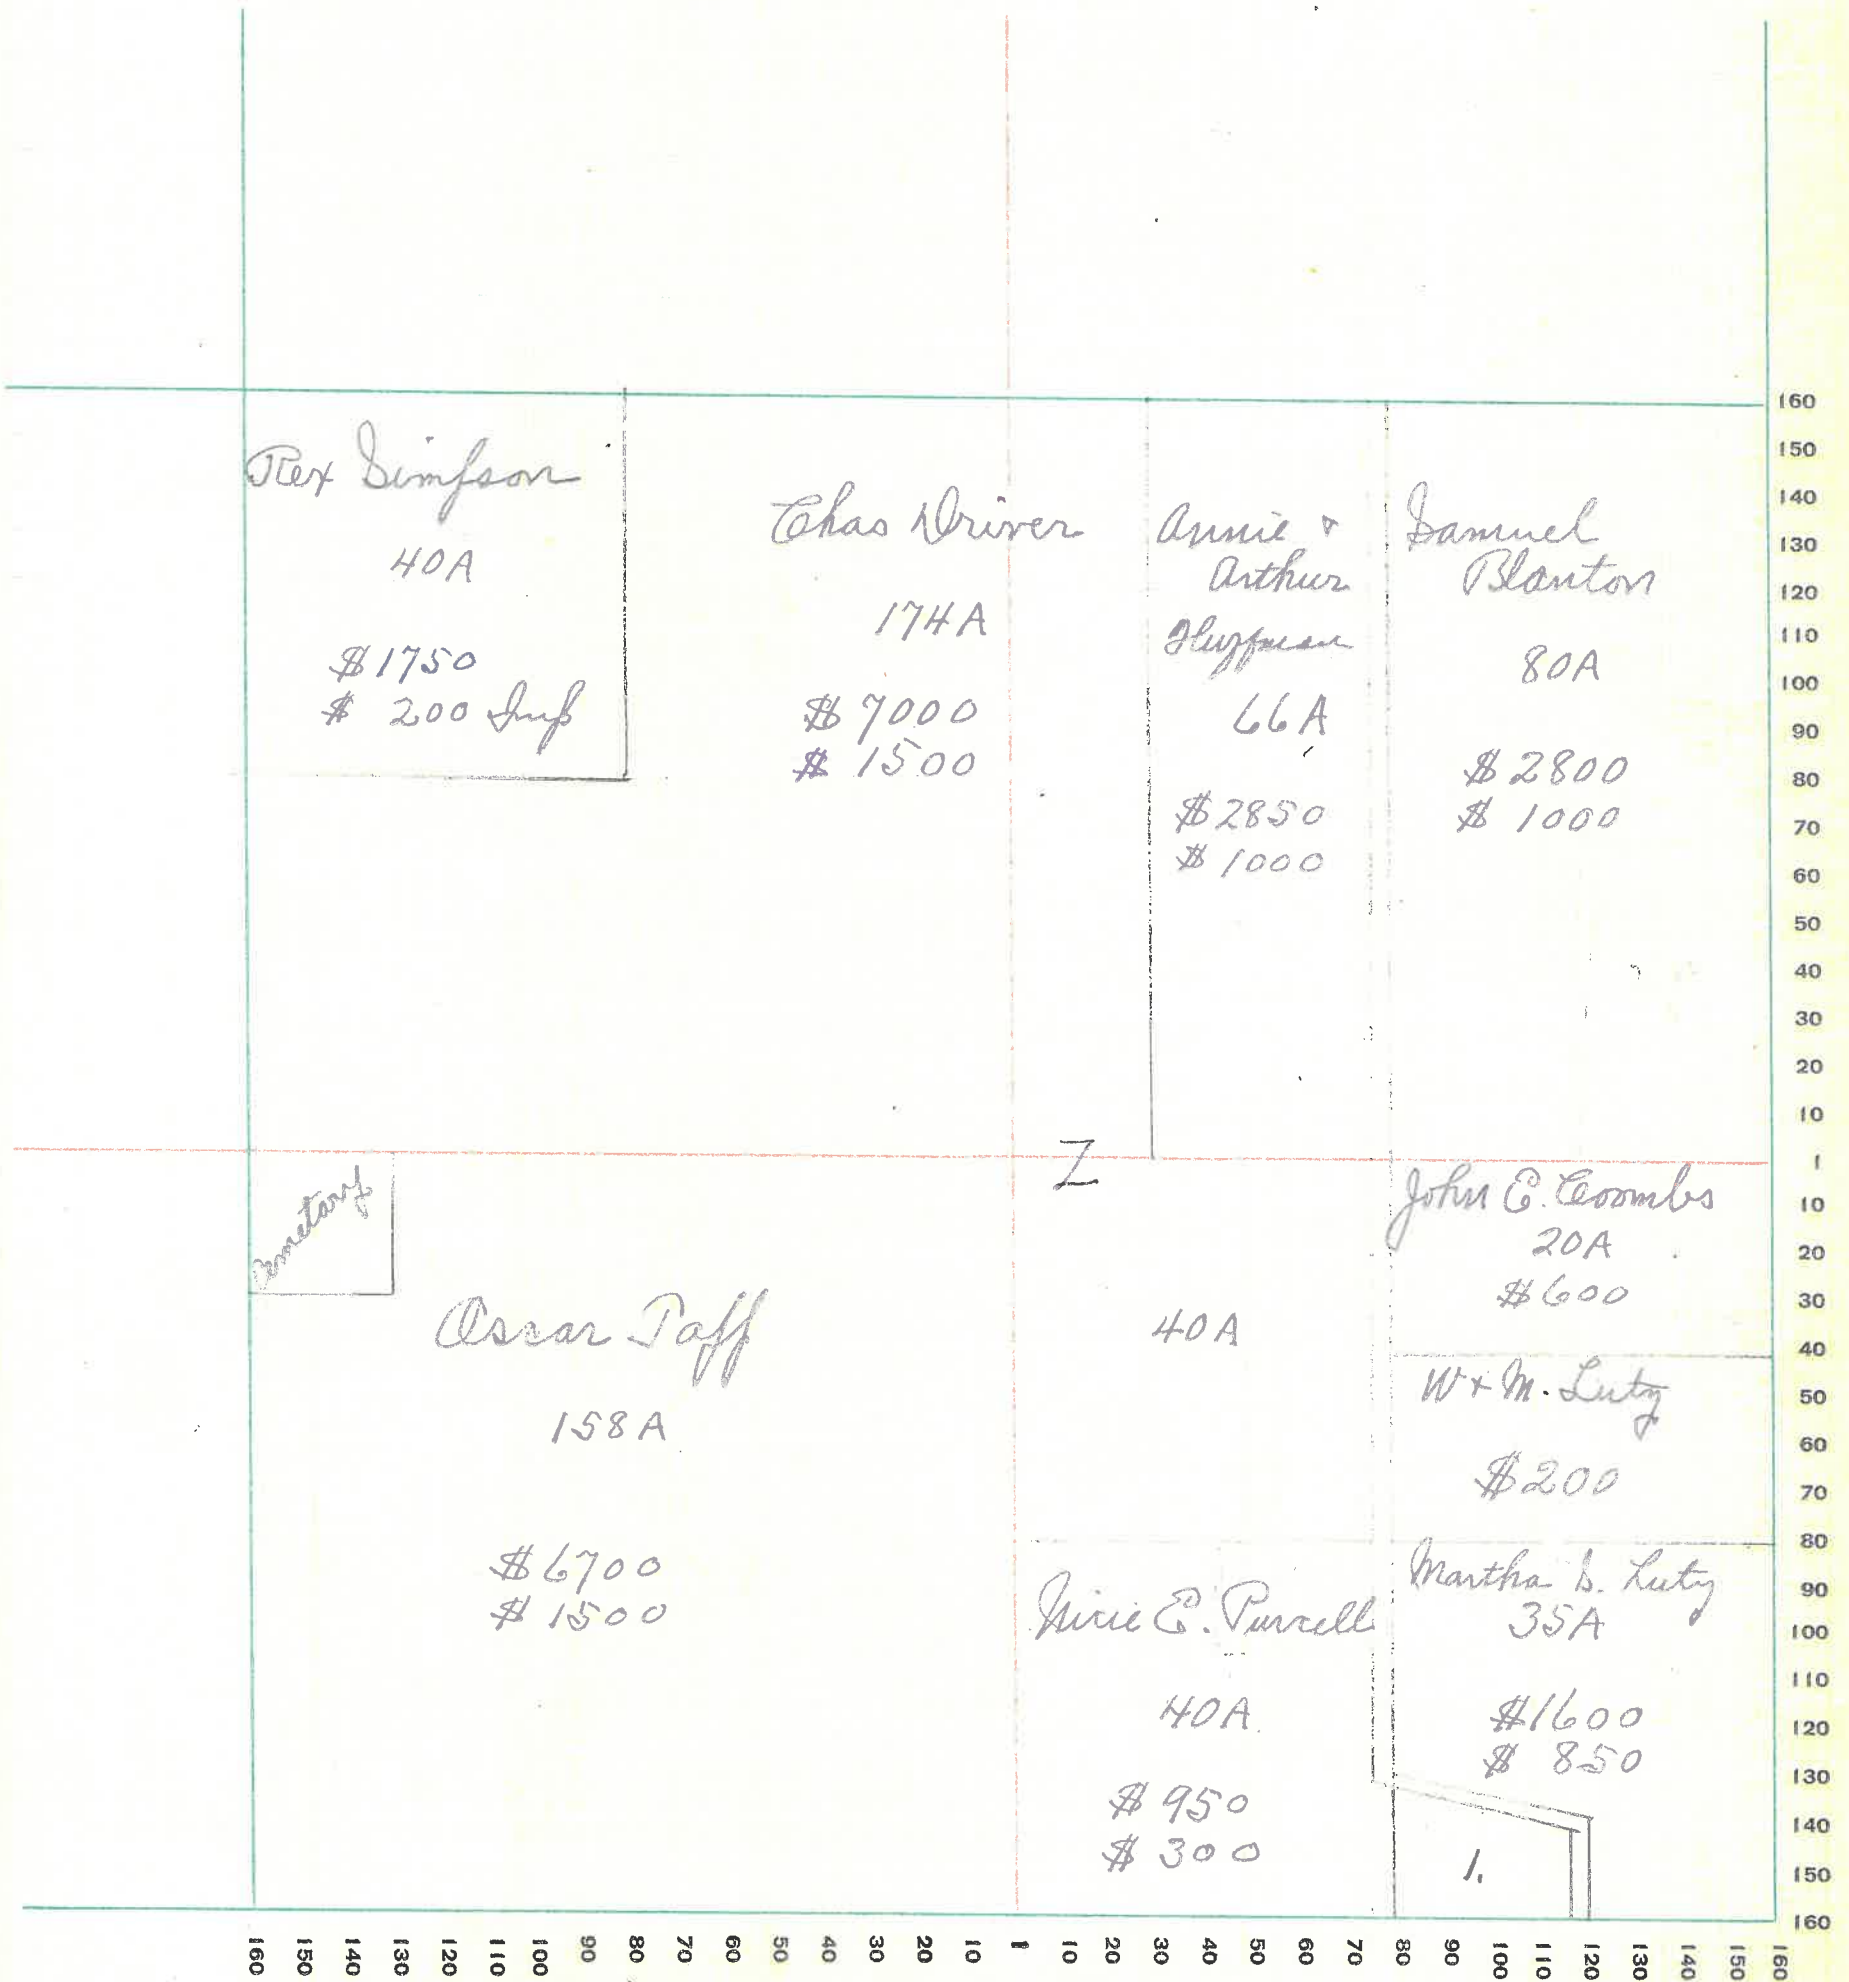 Rex Simpson
40A
$1750
$ 200 Imp
Chas Driver
174A
$7000
$ 1500
Annie &
Arthur
Huffman
66A
$2850
$ 1000
Samuel
Blanton
80A
$2800
$ 1000
160
150
140
130
120
110
100
90
80
70
60
50
40
30
20
10
1
10
20
30
40
50
60
70
80
90
100
110
120
130
140
150
160
Cemetary
Oscar Paff
158A
$6700
$ 1500
Z
40A
John E. Coombs
20A
$600
W + M. Luty
$200
E. Purcell
40A.
$950
$300
Martha S. Luty
35A
$1600
$ 850
1.
160
150
140
130
120
110
100
90
80
70
60
50
40
30
20
10
1
10
20
30
40
50
60
70
80
90
100
110
120
130
140
150
160